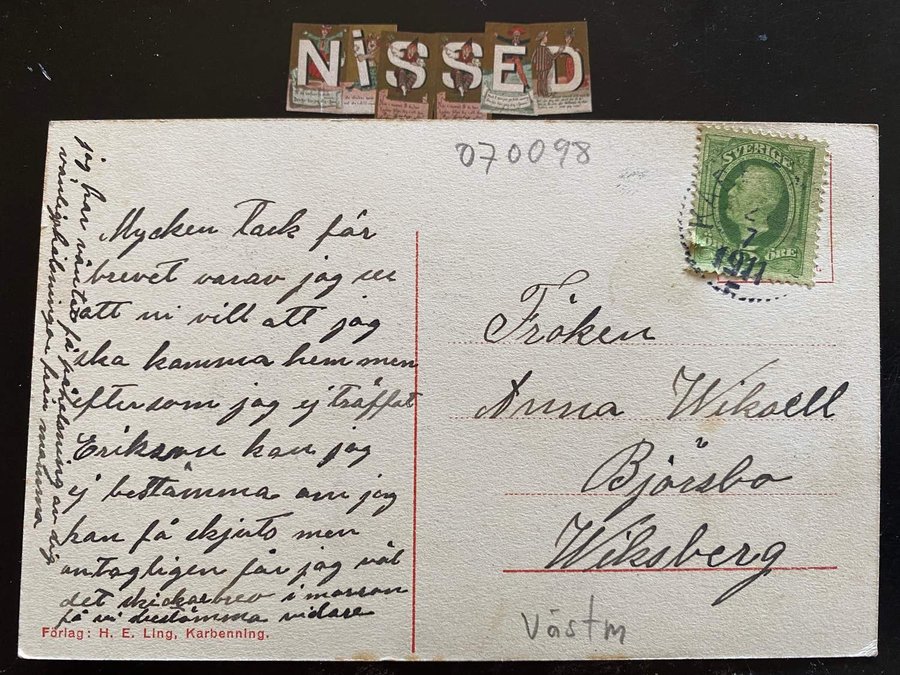 NiSSED
070098
SVERIGE
KAR
2
7
1911
ÖRE
Mycken tack får
brevet varav jag ser
att ni vill att jag
ska komma hem men
eftersom jag ej träffat
Erikson kan jag
ej bestämma om jag
kan få skjuts men
antagligen får jag väl
det skickar brev i morron
få vi bestämma vidare
jag har väntat på hälsning av dig
vänligahälsningar från mamma
Förlag: H. E. Ling, Karbenning.
Fröken
Anna Wiksell
Björsbo
Wiksberg
Västm